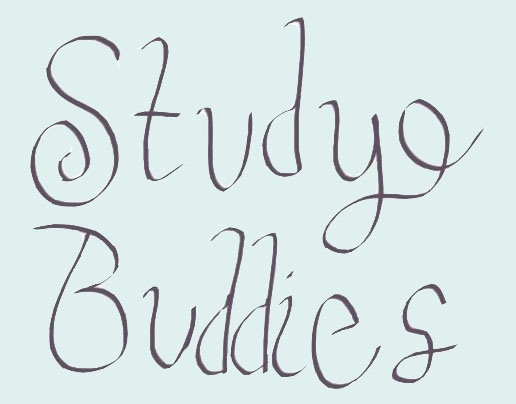 Studyo
Buddies